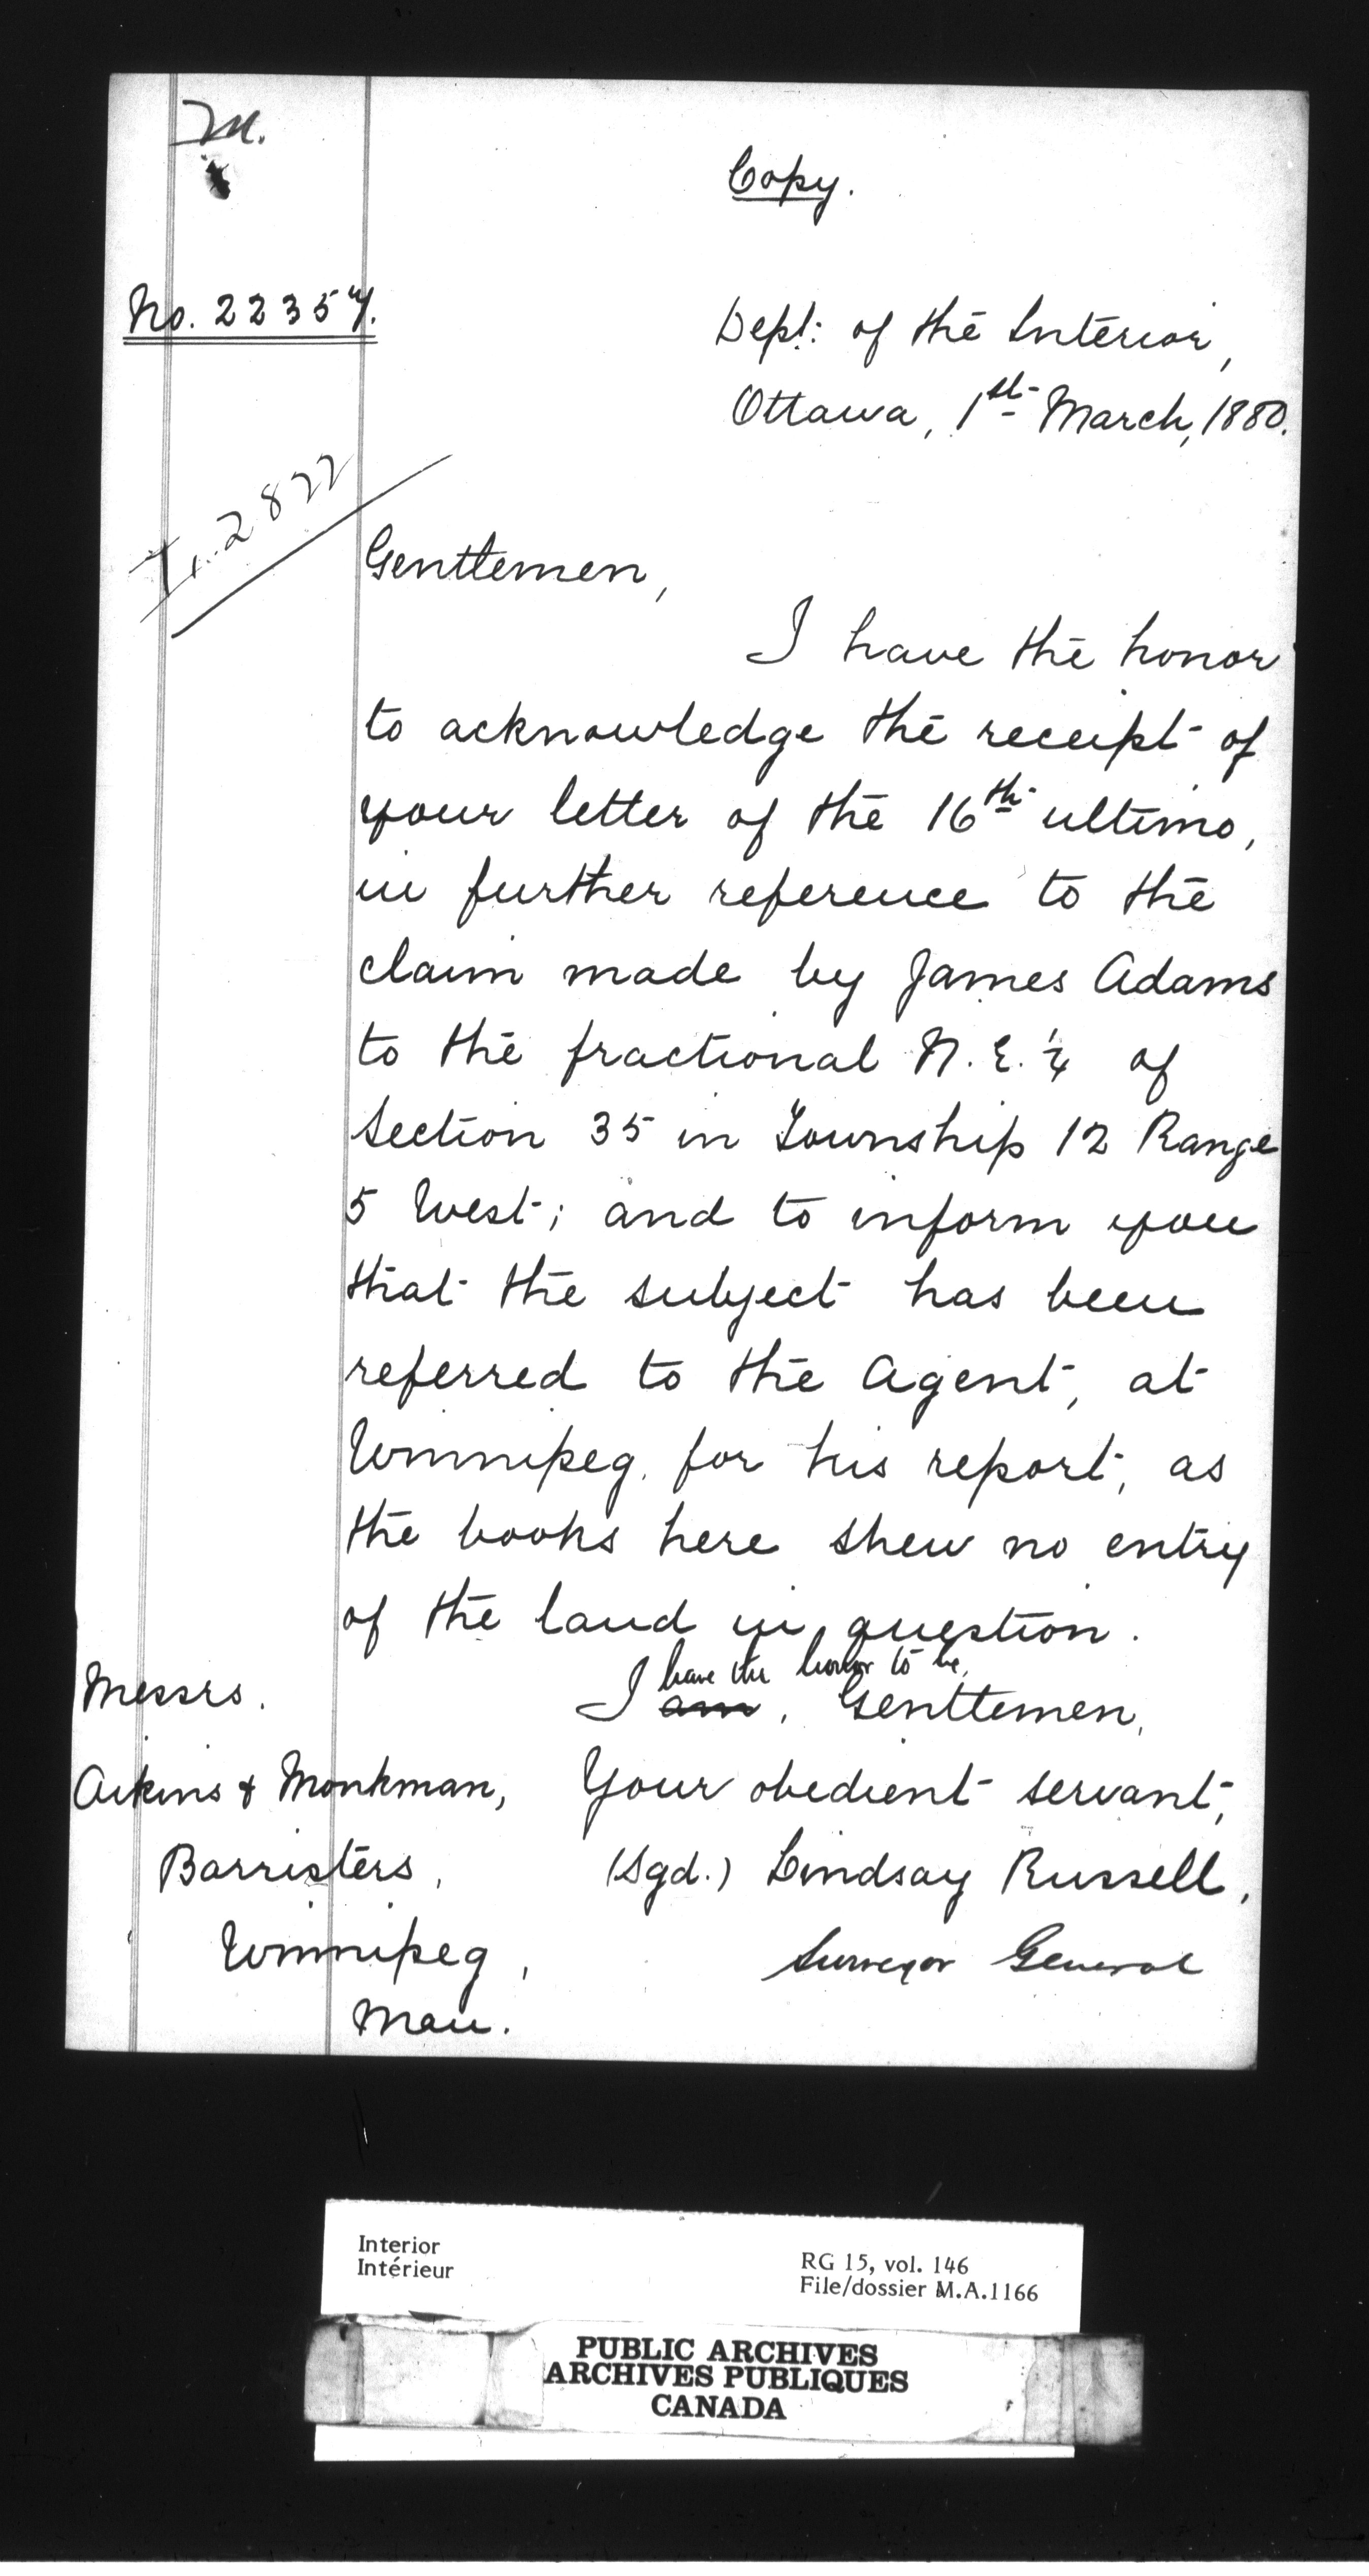 M.
Copy.
No. 22357.
Dept: of the Interior,
Ottawa, 1st March, 1880.
2822
Gentlemen,
I have the honor
to acknowledge the receipt of
your letter of the 16th ultimo,
in further reference to the
claim made by James Adams
to the fractional N. E. ¼ of
Section 35 in Township 12 Range
5 West; and to inform you
that the subject has been
referred to the Agent, at
Winnipeg, for his report, as
the books here shew no entry
of the land in question.
have the honor to be,
I am, Gentlemen,
Your obedient servant,
(Sgd.) Lindsay Russell,
Surveyor General
Messrs.
Aikins & Monkman,
Barristers,
Winnipeg,
Man.
Interior
Intérieur
RG 15, vol. 146
File/dossier M.A.1166
PUBLIC ARCHIVES
ARCHIVES PUBLIQUES
CANADA